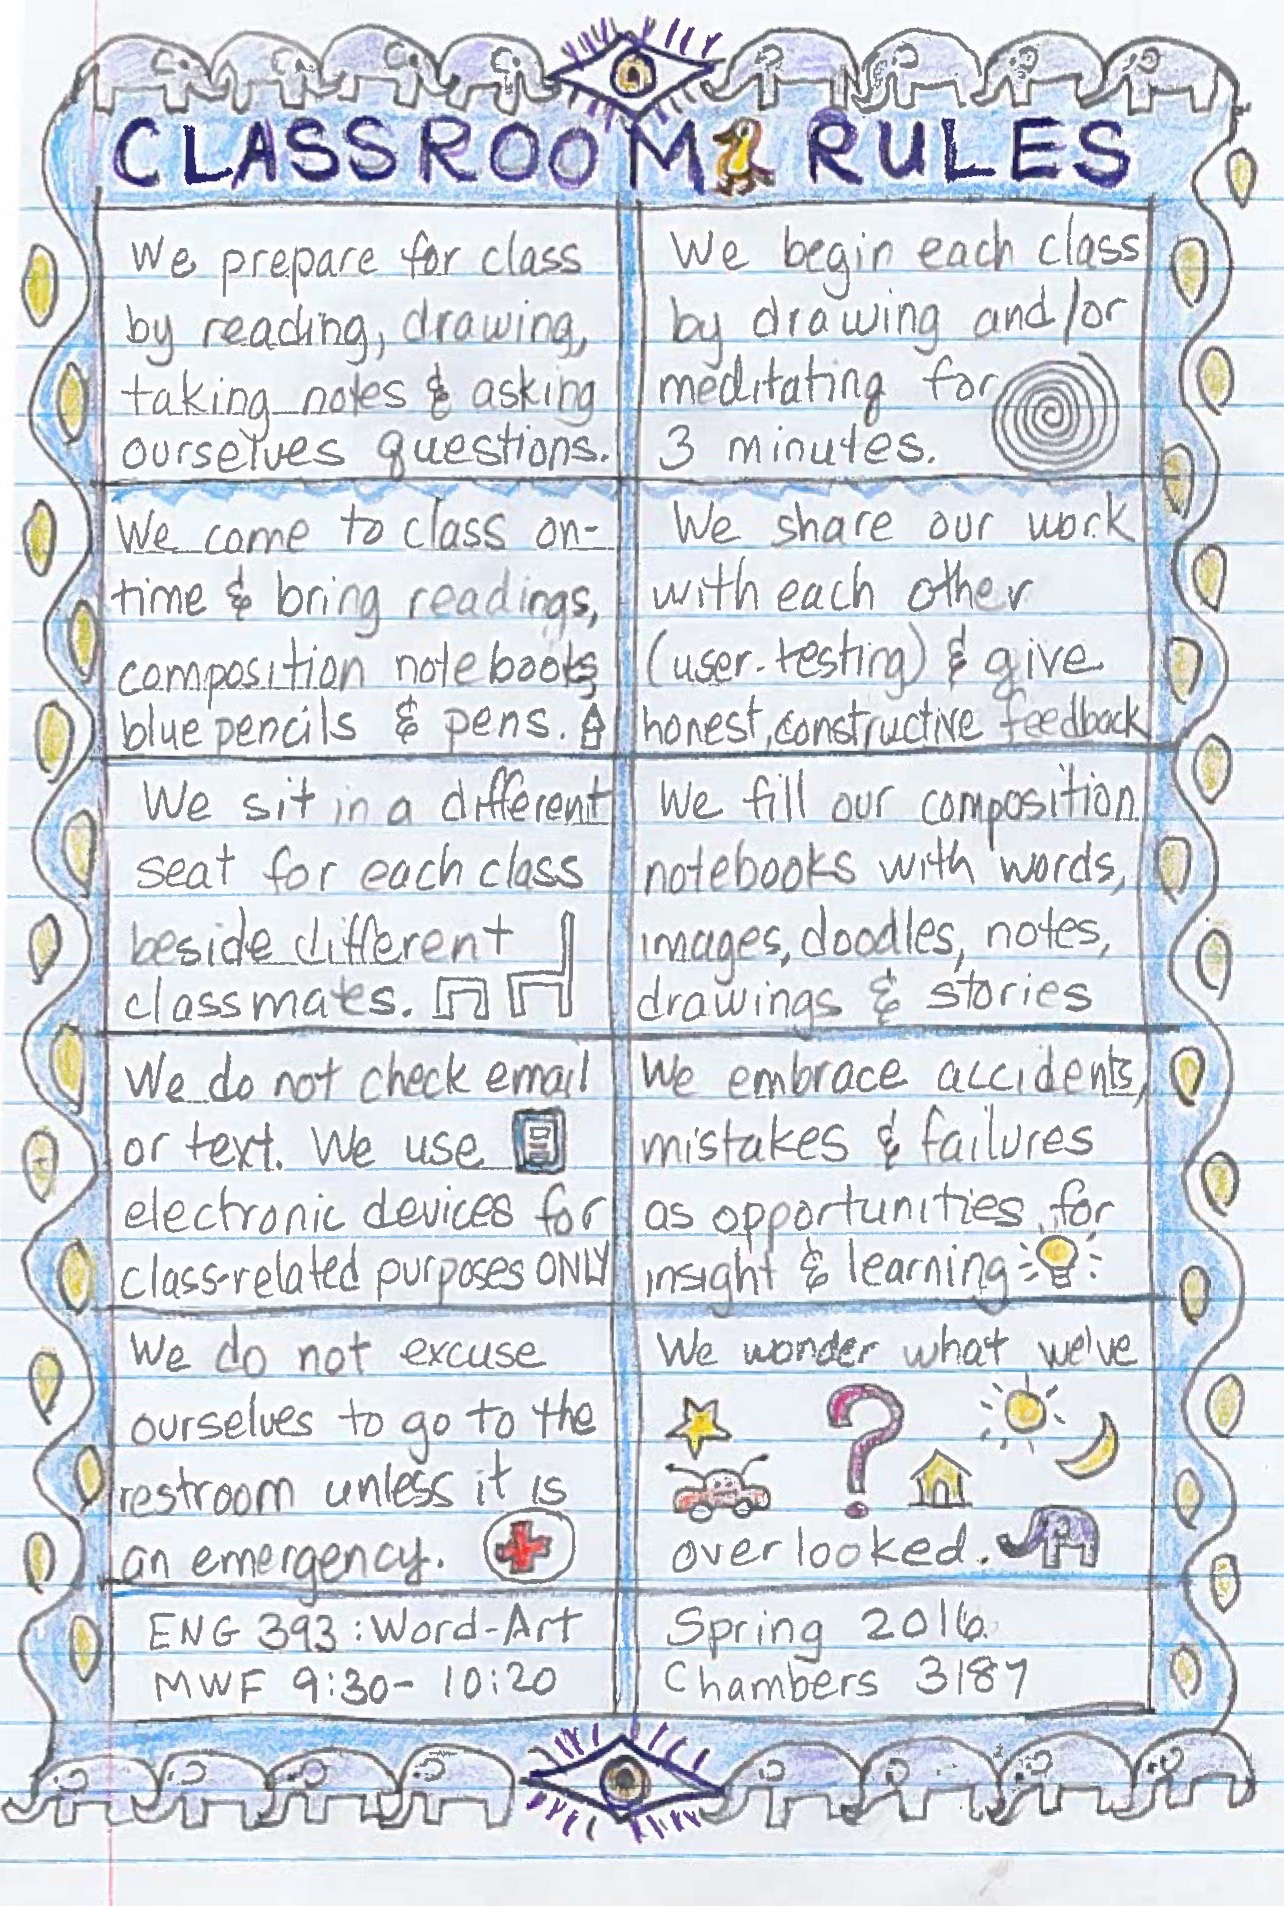 CLASSROOM RULES
We prepare for class
by reading, drawing,
taking notes & asking
ourselves questions.
We begin each class
by drawing and/or
meditating for
3 minutes.
We come to class on-
time & bring readings,
composition notebooks,
blue pencils & pens.
We share our work
with each other
(user-testing) & give
honest, constructive feedback
We sit in a different
seat for each class
beside different
classmates.
We fill our composition
notebooks with words,
images, doodles, notes,
drawings & stories
We do not check email
or text. We use
electronic devices for
class-related purposes ONLY
We embrace accidents,
mistakes & failures
as opportunities for
insight & learning
We do not excuse
ourselves to go to the
restroom unless it is
an emergency.
We wonder what we've
?
overlooked.
ENG 393: Word-Art
MWF 9:30-10:20
Spring 2016
Chambers 3187